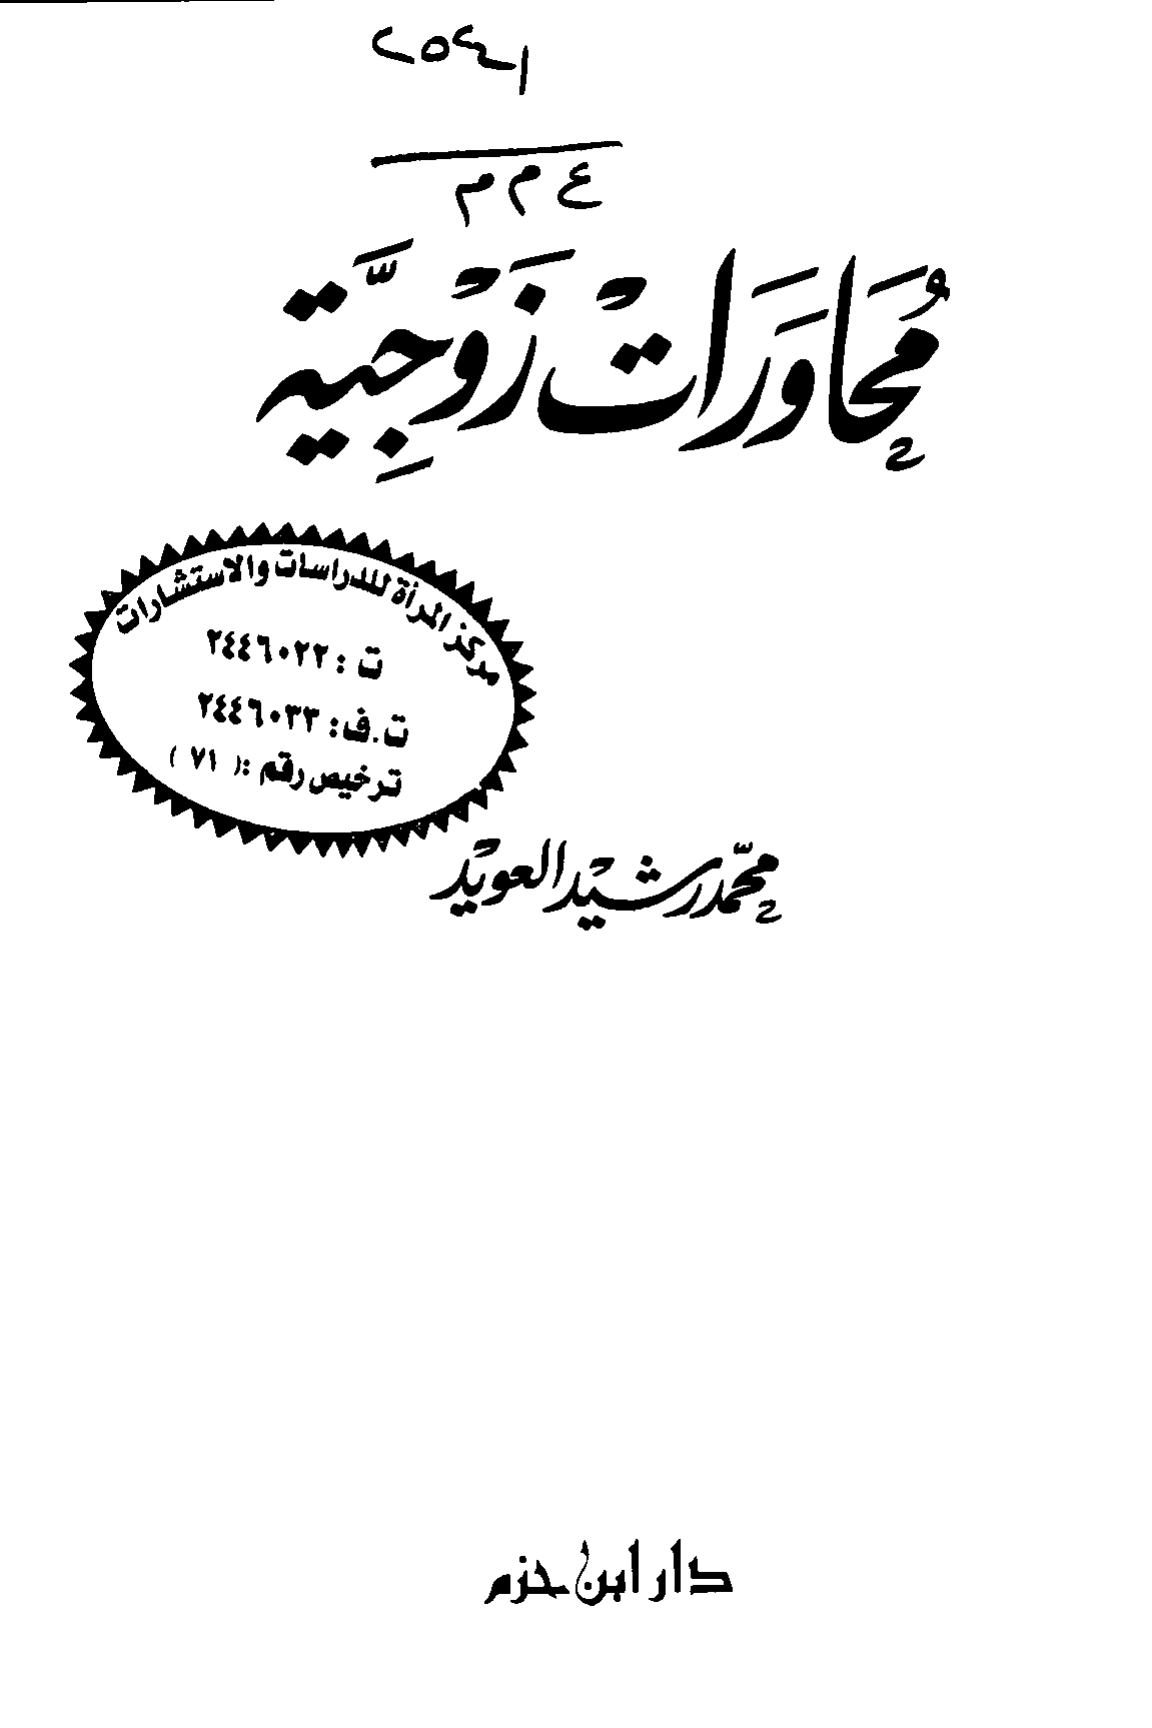 ٢٥٤١
ع م م
مُحَاوَرَاتْ زَوْجِيَّة
مركز المرأة للدراسات والاستشارات
ت : ٢٤٤٦٠٢٢
ت.ف: ٢٤٤٦٠٣٣
ترخيص رقم :( ٧١ )
محمّد رشيد العويد
دار ابن حزم